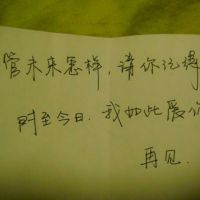 管未来怎样，请你记得
时至今日．我如此爱你
再见．